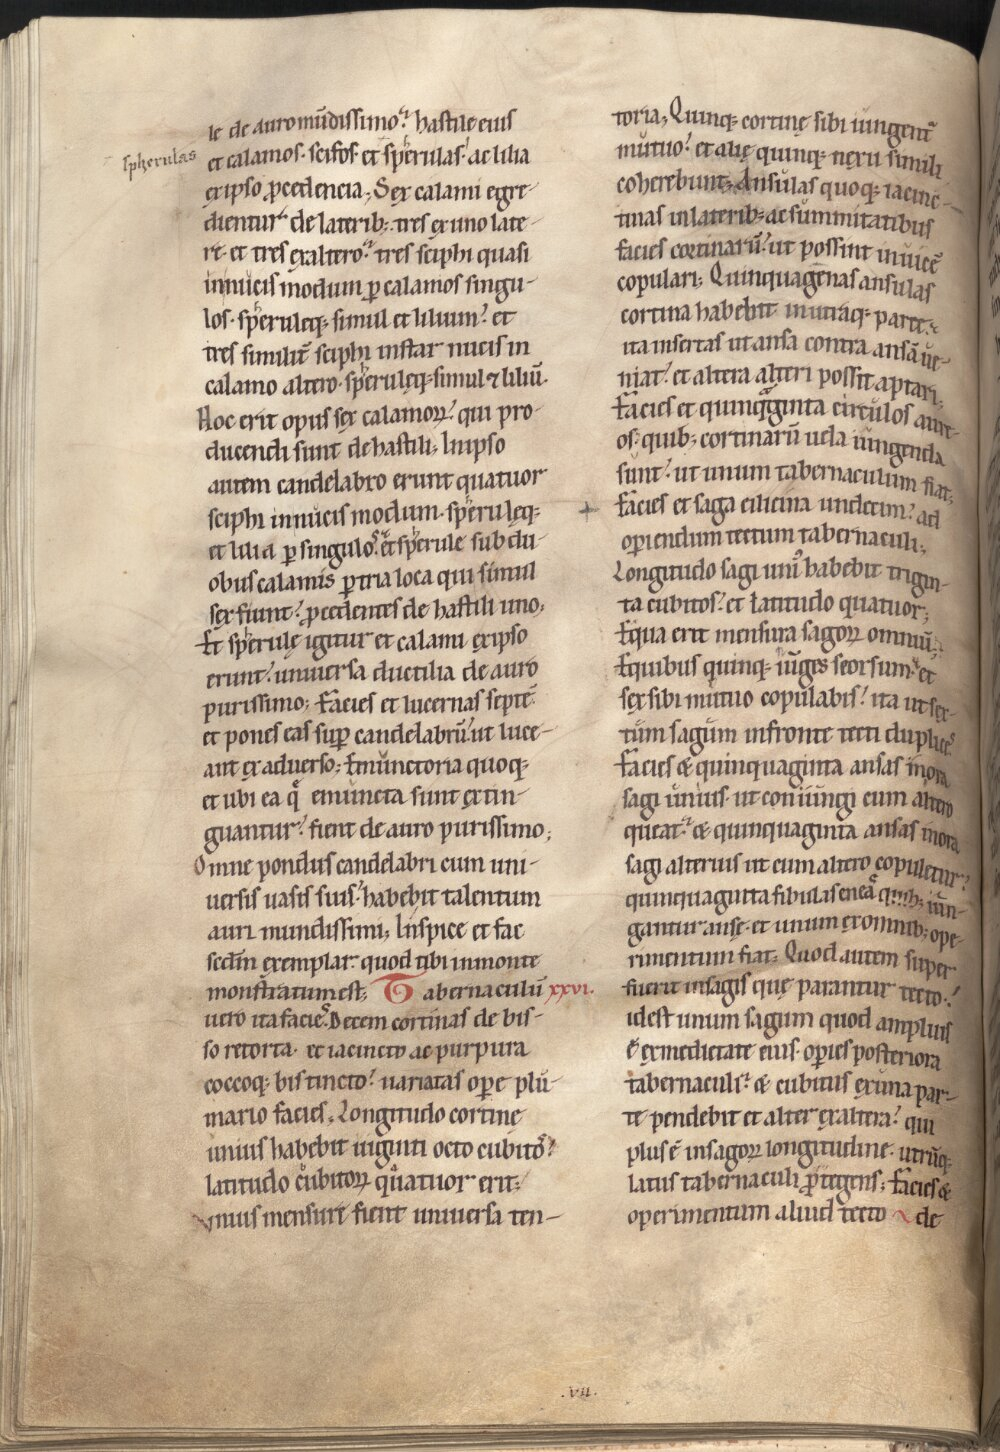 spherulas
le de auro mūdissimo. hastile eius
et calamos. scifos. et sperulas. ac lilia
ex ipso pcedencia; Sex calami egre-
dientur de laterib; tres ex uno late-
re. et tres ex altero. tres sciphi quasi
in nucis modum p calamos singu-
los. speruleq; simul et lilium. et
tres similit̄ sciphi instar nucis in
calamo altero. speruleq; simul ⁊ liliū.
Hoc erit opus sex calamoꝝ. qui pro-
ducendi sunt de hastili; In ipso
autem candelabro erunt quatuor
sciphi in nucis modum. speruleq;
et lilia p singulos. et sperule sub du-
obus calamis p tria loca qui simul
sex fiunt. pcedentes de hastili uno;
Et sperulę igitur et calami ex ipso
erunt. universa ductilia de auro
purissimo; Facies et lucernas septē.
et pones eas sup candelabrū. ut luce-
ant ex adverso; Emunctoria quoq;
et ubi ea q̄ emuncta sunt extin-
guantur. fient de auro purissimo;
Omne pondus candelabri cum uni-
versis vasis suis. habebit talentum
auri mundissimi; Inspice et fac
secdm exemplar. quod tibi in monte
monstratum est; Tabernaculū xxvi.
vero ita facies. Decem cortinas de bis-
so retorta. et iacincto ac purpura
coccoq; bis tincto. variatas ope plu-
mario facies; Longitudo cortinę
unius habebit viginti octo cubitos.
latitudo cubitoꝝ quatuor erit;
Unius mensurę fient universa ten-
toria; Quinq; cortinę sibi iungent̄
mutuo. et alię quinq; nexu simili
coherebunt; Ansulas quoq; iacinc-
tinas in laterib; ac summitatibus
facies cortinarū. ut possint invicē
copulari; Quinquagenas ansulas
cortina habebit in utraq; parte.
ita insertas ut ansa contra ansā ve-
niat. et altera alteri possit aptari;
Facies et quinquaginta circulos aure-
os. quib; cortinarū vela iungenda
sunt. ut unum tabernaculum fiat;
Facies et saga cilicina undecim. ad
operiendum tectum tabernaculi;
Longitudo sagi uni habebit trigin-
ta cubitos. et latitudo quatuor;
Equa erit mensura sagoꝝ omniū;
E quibus quinq; iunges seorsum. et
sex sibi mutuo copulabis. ita ut sex-
tum sagum in fronte tecti duplices.
Facies & quinquaginta ansas in ora
sagi unius. ut coniungi cum altero
queat. & quinquaginta ansas in ora
sagi alterius ut cum altero copuletur.
quinquaginta fibulas eneas quib; iun-
gantur ansę. et unum ex omnib; ope-
rimentum fiat; Quod autem super
fuerit in sagis quę parantur tecto.
id est unum sagum quod amplius
ē. ex medietate eius. opies posteriora
tabernaculi. & cubitus ex una par-
te pendebit et alter ex altera. qui
plus ē in sagoꝝ longitudine. utrūq;
latus tabernaculi ptegens; Facies &
operimentum aliud tecto de
.vii.